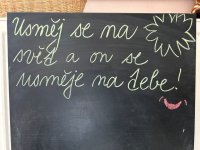 Usměj se na
svět a on se
usměje na Tebe!